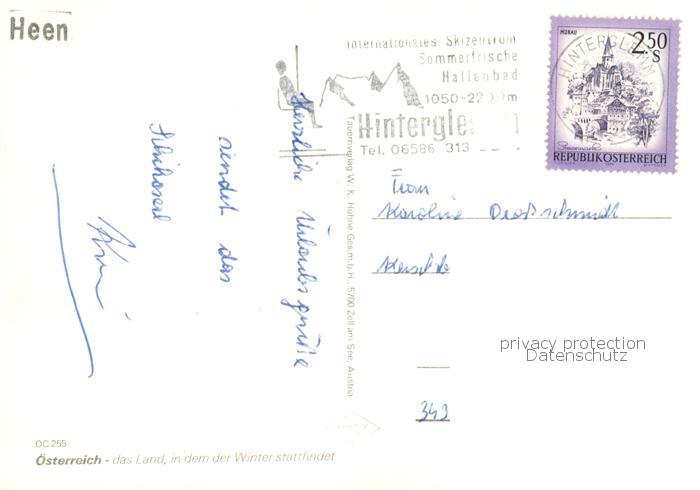 Heen
Internationales Skizentrum
Sommerfrische
Hallenbad
1050-22 m
Hintergle
Tel. 06586 313
HINTERGLEMM
MURAU
2.50
S
Steiermark
REPUBLIK ÖSTERREICH
Herzliche Urlaubsgrüße
sendet das
Schihaserl
Tauernverlag W. K. Hühne Ges.m.b.H., 5700 Zell am See, Austria
Frau
Karoline Droßschmidt
349
privacy protection
Datenschutz
OC 255
Österreich - das Land, in dem der Winter stattfindet